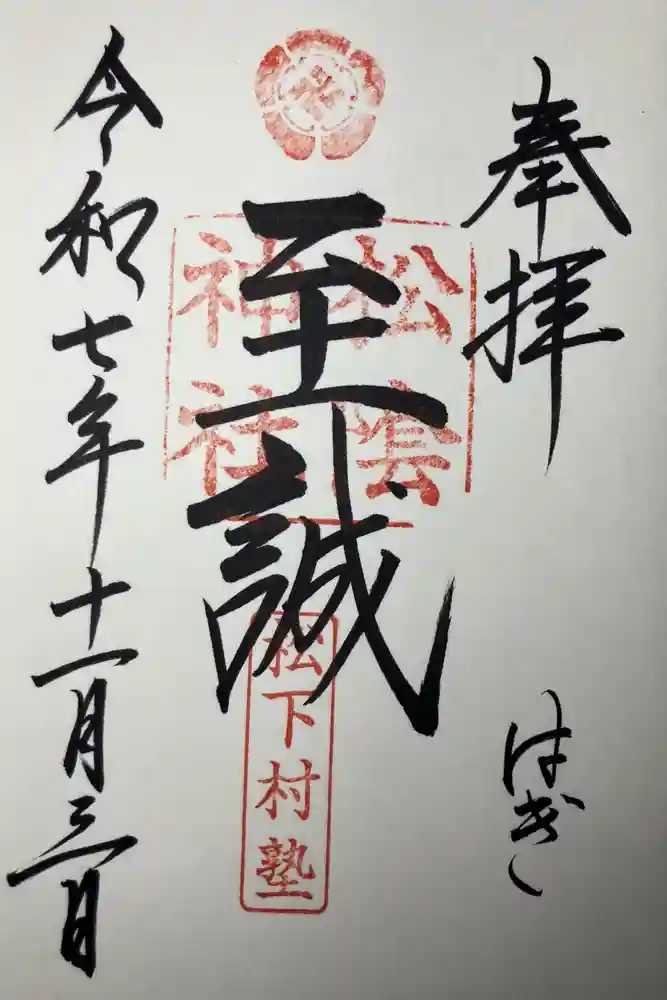 奉拝
はぎ
至誠
松陰神社
松下村塾
令和七年十一月三日